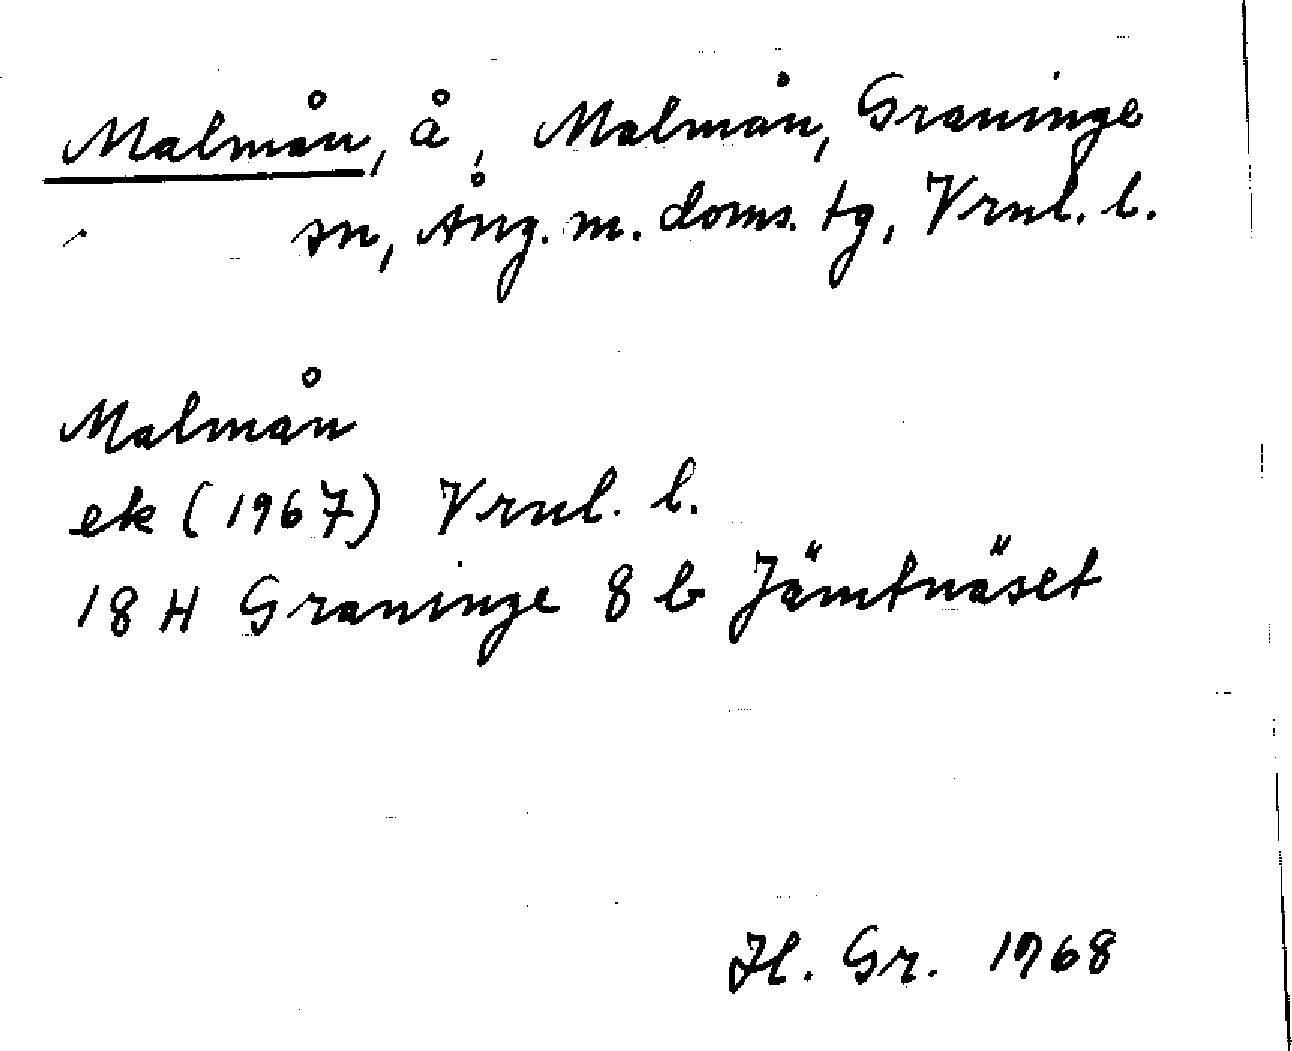 Malmån, å, Malmån, Graninge
sn, Ång. m. doms. tg, Vrnl. l.
Malmån
ek (1967) Vrnl. l.
18 H Graninge 8 b Jämtnäset
Hl. Gr. 1968